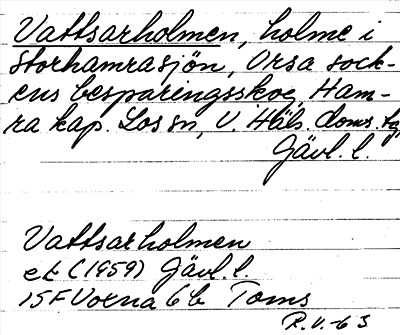 Vattsarholmen, holme i
Storhamrasjön, Orsa sock-
ens besparingsskog, Ham-
ra kap. Los sn, V. Häls. doms.
Gävl. l.
Vattsarholmen
ek (1959) Gävl. l.
15F Voxna 6b Toms
R.V.-63